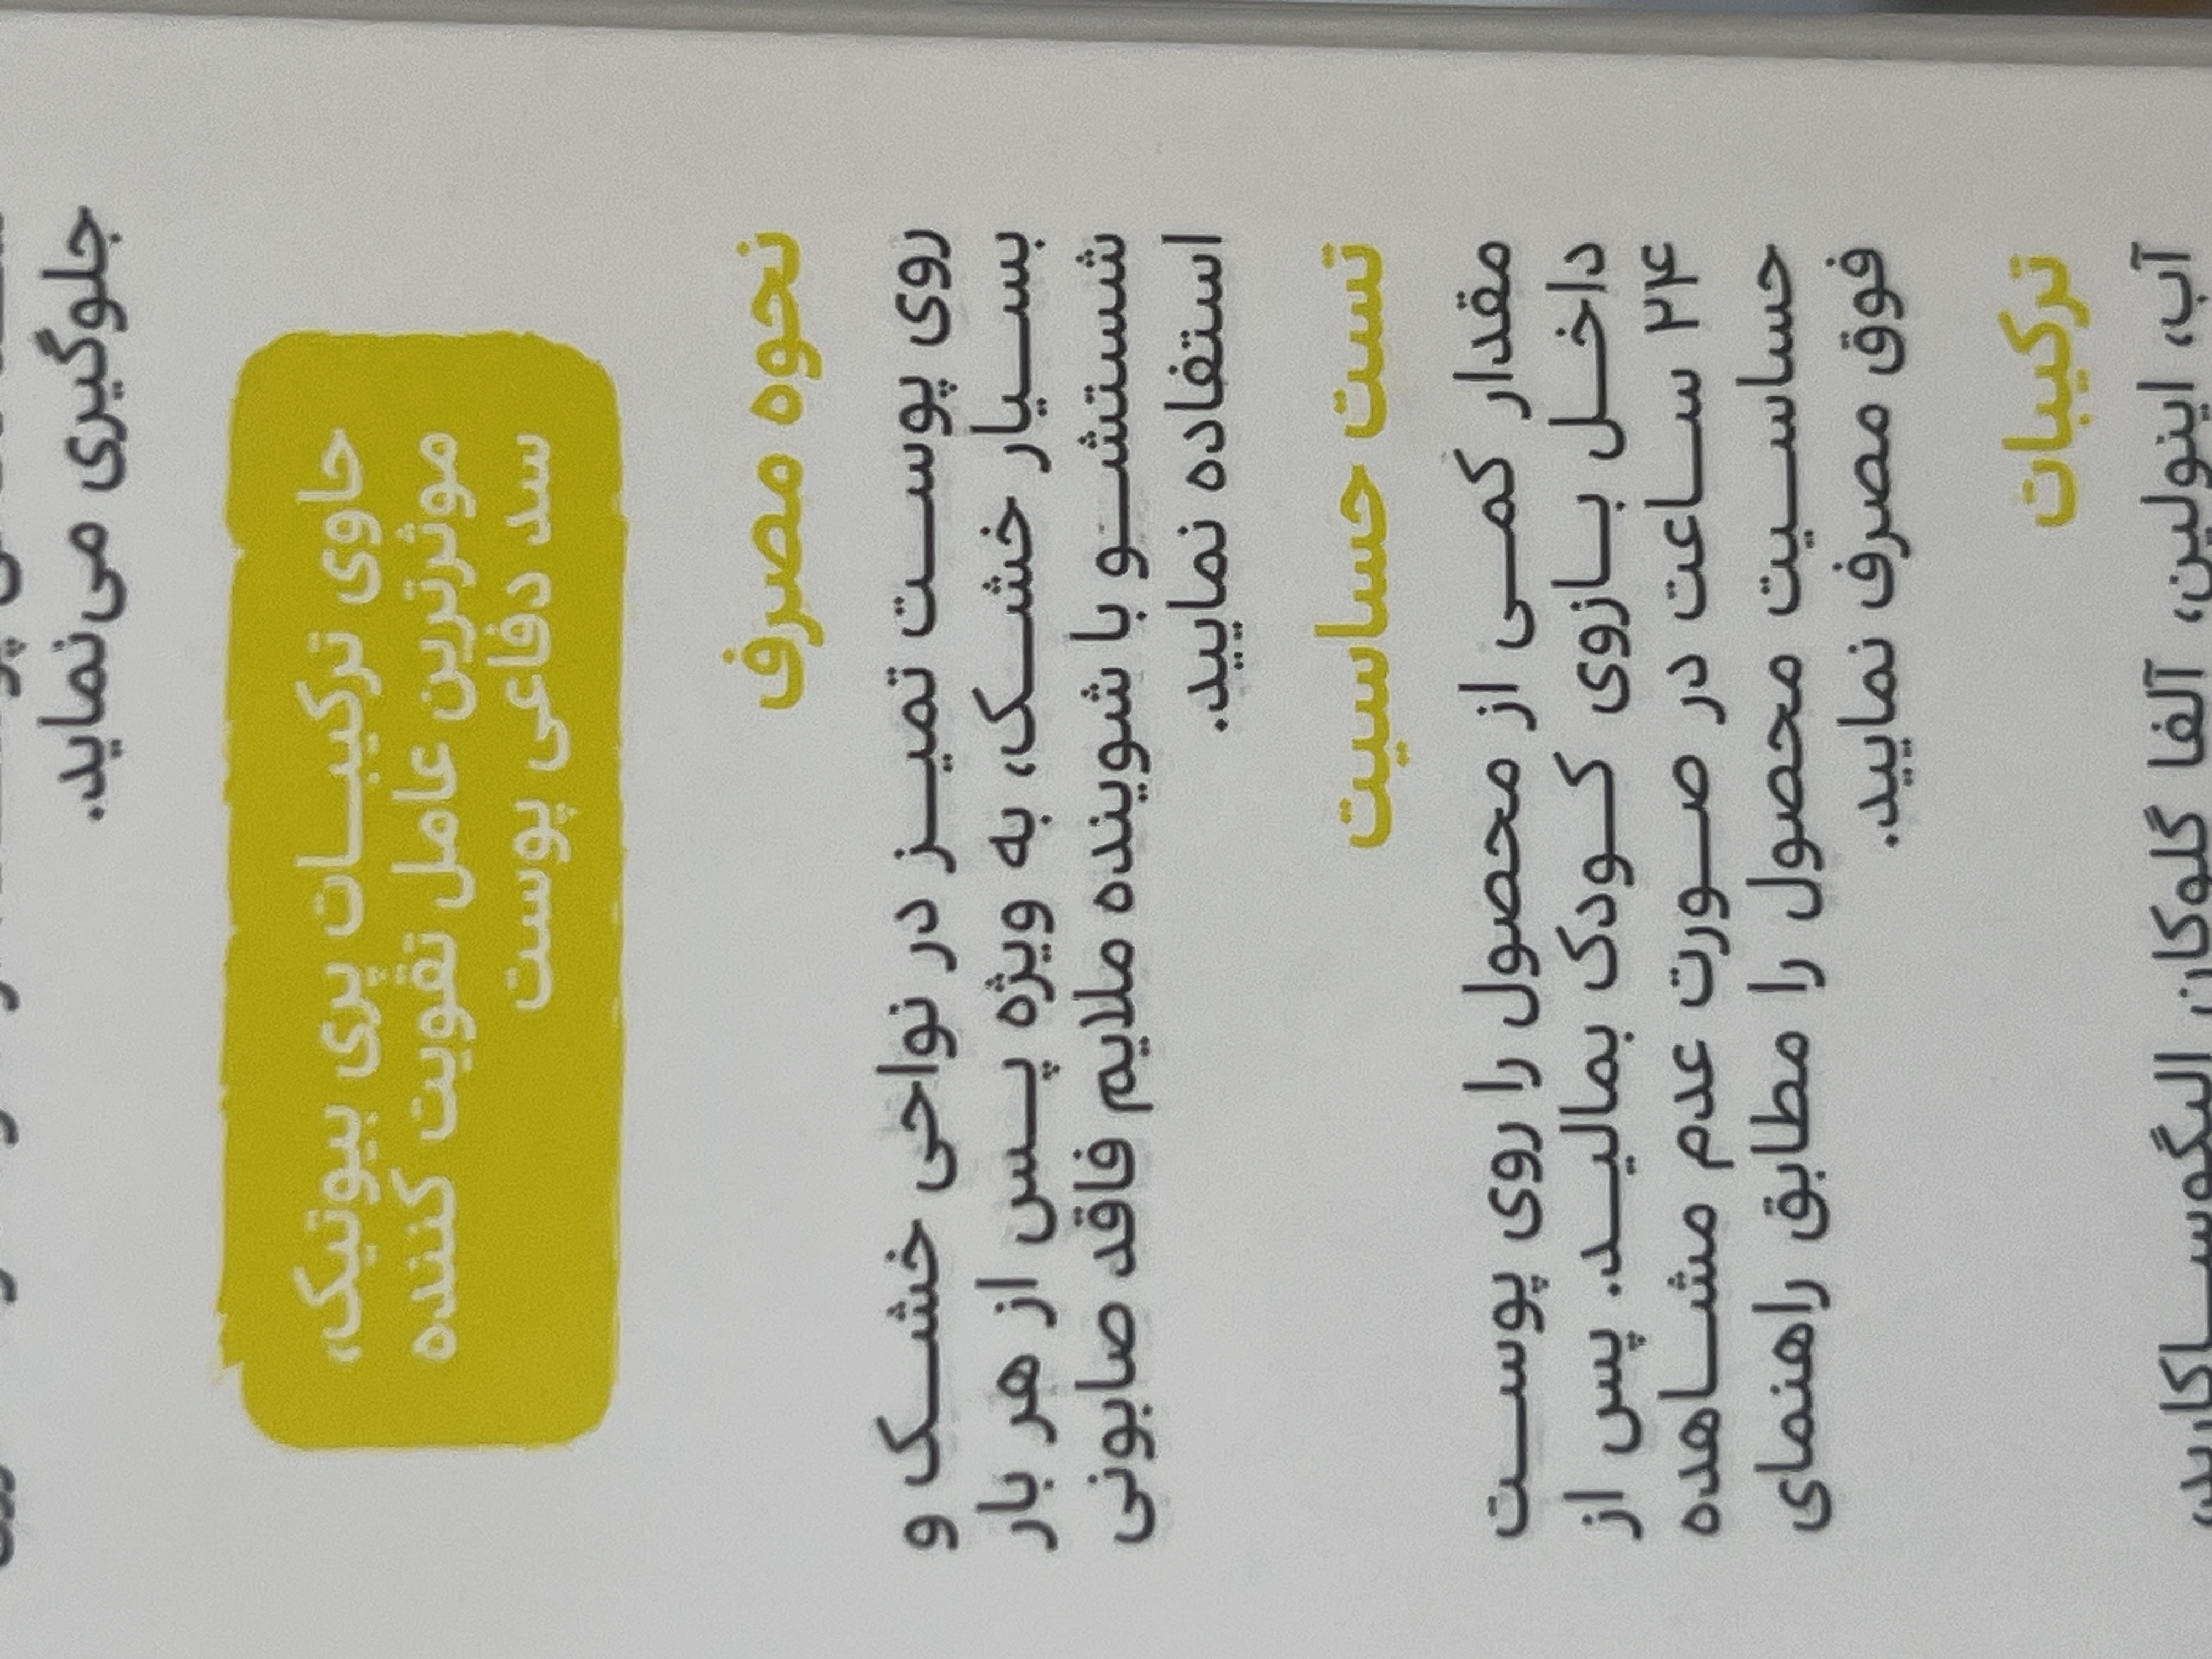 جلوگیری می‌نماید.
حاوی ترکیبات پری بیوتیک،
موثرترین عامل تقویت کننده
سد دفاعی پوست
نحوه مصرف
روی پوست تمیز در نواحی خشک و
بسیار خشک، به ویژه پس از هر بار
شستشو با شوینده ملایم فاقد صابونی
استفاده نمایید.
تست حساسیت
مقدار کمی از محصول را روی پوست
داخل بازوی کودک بمالید. پس از
۲۴ ساعت در صورت عدم مشاهده
حساسیت محصول را مطابق راهنمای
فوق مصرف نمایید.
ترکیبات
آب، اینولین، آلفا گلوکان الیگوساکارید،